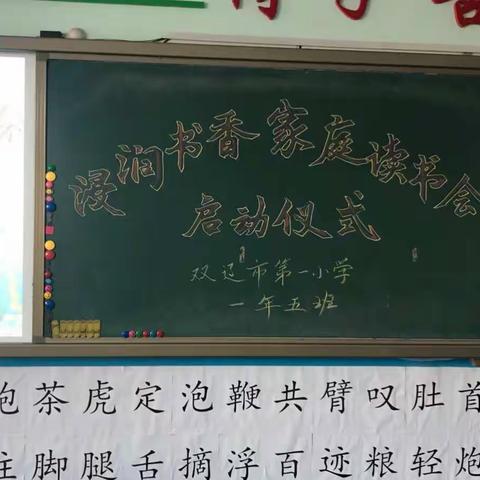 浸润书香 家庭读书会
启动仪式
双辽市第一小学
一年五班
抱茶虎定泡鞭共臂叹肚首
柱脚腿舌摘浮百迹粮轻炮